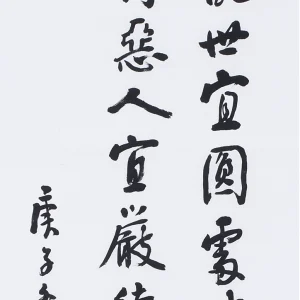 世宜圓處
惡人宜嚴
庚子